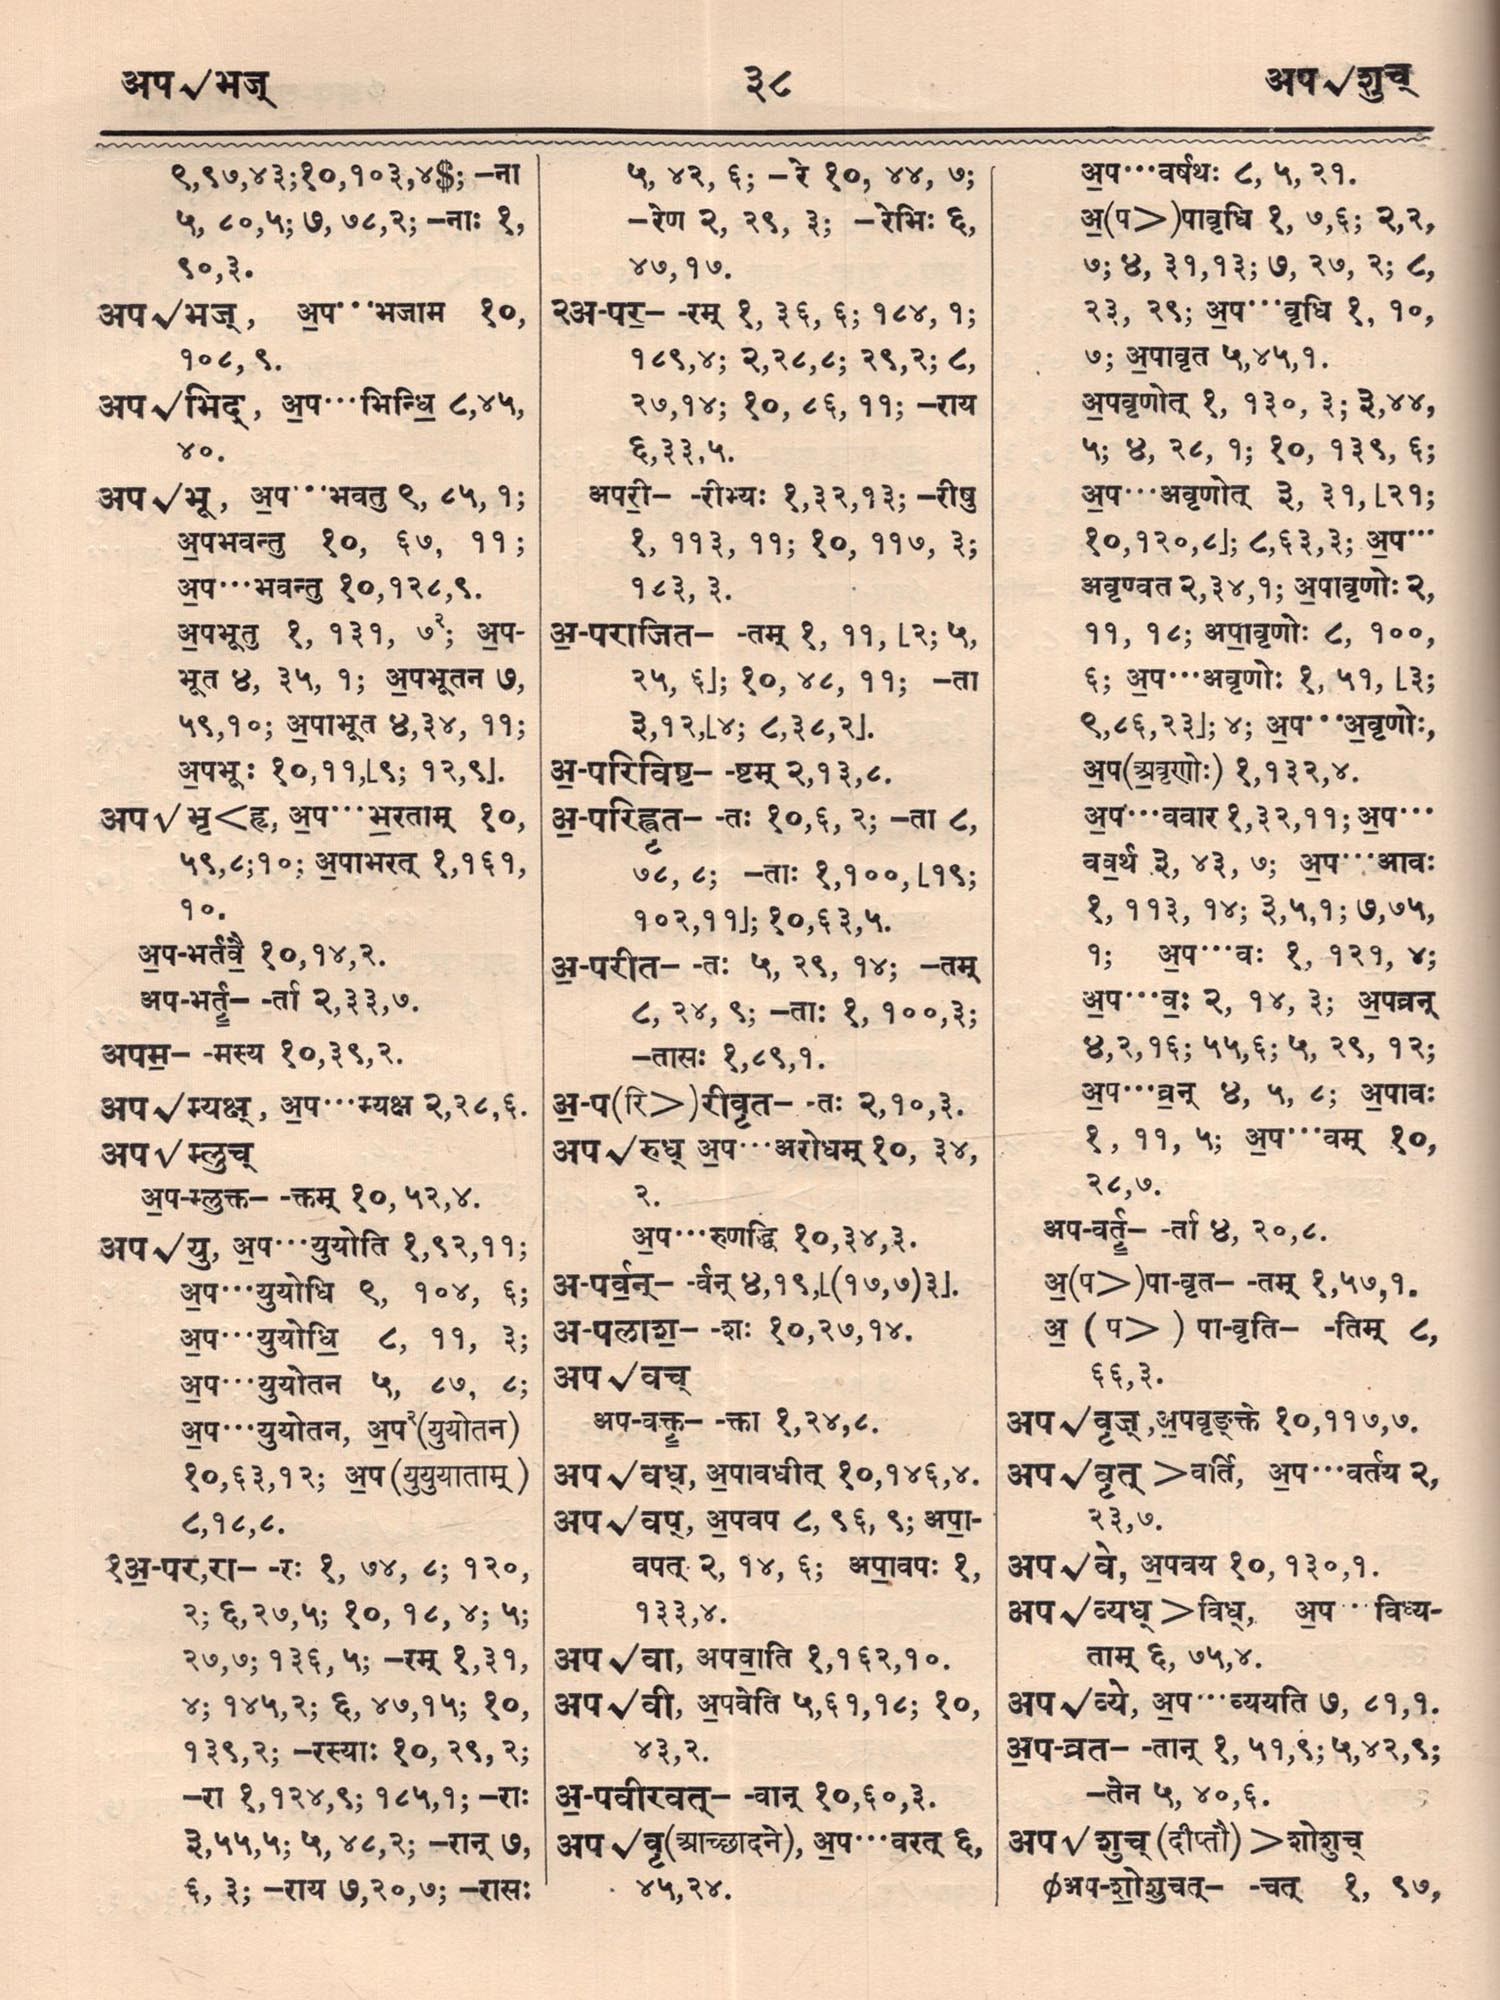 अप√भज्
३८
अप√शुच्
९,९७,४३;१०,१०३,४$; –ना
५, ८०,५; ७, ७८,२; –नाः १,
९०,३.
अप√भज्, अ॒प···भजाम १०,
१०८, ९.
अप√भिद्, अ॒प···भिन्धि॒ ८,४५,
४०.
अप√भू, अ॒प···भवतु ९, ८५, १;
अ॒पभवन्तु १०, ६७, ११;
अ॒प···भवन्तु १०,१२८,९.
अ॒पभूतु १, १३१, ७२; अ॒प-
भूत ४, ३५, १; अ॒पभूतन ७,
५९,१०; अ॒पाभूत ४,३४, ११;
अ॒पभूः १०,११,⌊९; १२,९⌋.
अप√भृ<हृ, अ॒प···भ॒रताम् १०,
५९,८;१०; अ॒पाभरत् १,१६१,
१०.
अ॒प-भर्तवै॒ १०,१४,२.
अप-भर्तृ॒– -र्ता २,३३,७.
अपम॒– -मस्य १०,३९,२.
अप√म्यक्ष्, अ॒प···म्यक्ष २,२८,६.
अप√म्लुच्
अ॒प-म्लुक्त– -क्तम् १०,५२,४.
अप√यु, अ॒प···युयोति १,९२,११;
अ॒प···युयोधि ९, १०४, ६;
अ॒प···युयोधि॒ ८, ११, ३;
अ॒प···युयोतन ५, ८७, ८;
अ॒प···युयोतन, अ॒प२(युयोतन)
१०,६३,१२; अ॒प(युयुयाताम्)
८,१८,८.
१अ॒-पर,रा– -रः १, ७४, ८; १२०,
२; ६,२७,५; १०, १८, ४; ५;
२७,७; १३६, ५; –रम् १,३१,
४; १४५,२; ६, ४७,१५; १०,
१३९,२; –रस्याः १०, २९, २;
–रा १,१२४,९; १८५,१; –राः
३,५५,५; ५, ४८,२; –रान् ७,
६, ३; –राय ७,२०,७; –रासः
५, ४२, ६; –रे १०, ४४, ७;
–रेण २, २९, ३; –रेभिः ६,
४७,१७.
२अ-पर॒– -रम् १, ३६, ६; १८४, १;
१८९,४; २,२८,८; २९,२; ८,
२७,१४; १०, ८६, ११; –राय
६,३३,५.
अपरी॒– -रीभ्यः १,३२,१३; –रीषु
१, ११३, ११; १०, ११७, ३;
१८३, ३.
अ॒-पराजित– -तम् १, ११, ⌊२; ५,
२५, ६⌋; १०, ४८, ११; –ता
३,१२,⌊४; ८,३८,२⌋.
अ॒-परिविष्ट– -ष्टम् २,१३,८.
अ॒-परिह्वृत– -तः १०,६, २; –ता ८,
७८, ८; –ताः १,१००,⌊१९;
१०२,११⌋; १०,६३,५.
अ॒-परीत– -तः ५, २९, १४; –तम्
८, २४, ९; –ताः १, १००,३;
–तासः १,८९,१.
अ॒-प(रि>)रीवृत– -तः २,१०,३.
अप√रुध् अ॒प···अरोधम् १०, ३४,
२.
अ॒प···रुणद्धि १०,३४,३.
अ-पर्व॒न्– -र्वन् ४,१९,⌊(१७,७)३⌋.
अ-पलाश॒– -शः १०,२७,१४.
अप√वच्
अप-वक्तृ॒– -क्ता १,२४,८.
अप√वध्, अ॒पावधीत् १०,१४६,४.
अप√वप्, अ॒पवप ८, ९६, ९; अपा॒-
वपत् २, १४, ६; अपा॒वपः १,
१३३,४.
अप√वा, अपवा॒ति १,१६२,१०.
अप√वी, अ॒पवेति ५,६१,१८; १०,
४३,२.
अ॒-पवीरवत्– -वान् १०,६०,३.
अप√वृ(आच्छादने), अ॒प···वरत् ६,
४५,२४.
अ॒प···वर्षथः ८, ५, २१.
अ॒(प>)पावृधि १, ७,६; २,२,
७; ४, ३१,१३; ७, २७, २; ८,
२३, २९; अ॒प···वृधि १, १०,
७; अ॒पावृत ५,४५,१.
अ॒पवृणोत् १, १३०, ३; ३,४४,
५; ४, २८, १; १०, १३९, ६;
अ॒प···अवृणोत् ३, ३१,⌊२१;
१०,१२०,८⌋; ८,६३,३; अ॒प···
अवृण्वत २,३४,१; अ॒पावृणोः २,
११, १८; अपा॒वृणोः ८, १००,
६; अ॒प···अवृणोः १, ५१, ⌊३;
९,८६,२३⌋; ४; अ॒प···अ॒वृणोः,
अ॒प(अ॒वृणोः) १,१३२,४.
अ॒प···ववार १,३२,११; अ॒प···
वव॒र्थ ३, ४३, ७; अ॒प···आवः
१, ११३, १४; ३,५,१; ७,७५,
१; अ॒प···वः १, १२१, ४;
अ॒प···व॒ः २, १४, ३; अ॒पव्रन्
४,२,१६; ५५,६; ५, २९, १२;
अ॒प···व्र॒न् ४, ५, ८; अ॒पावः
१, ११, ५; अ॒प···वम् १०,
२८,७.
अप-वर्तृ॒– -र्ता ४, २०,८.
अ॒(प>)पा-वृत– -तम् १,५७,१.
अ॒ ( प> ) पा-वृति– -तिम् ८,
६६,३.
अप√वृज्,अ॒पवृङ्क्ते १०,११७,७.
अप√वृत् >वर्ति, अ॒प···वर्तय २,
२३,७.
अप√वे, अ॒पवय १०,१३०,१.
अप√व्यध् >विध्, अ॒प···विध्य-
ताम् ६, ७५,४.
अप√व्ये, अ॒प···व्ययति ७, ८१,१.
अ॒प-व्रत– -तान् १, ५१,९; ५,४२,९;
–तेन ५, ४०,६.
अप√शुच् (दीप्तौ) >शोशुच्
∮अप-शो॒शुचत्– -चत् १, ९७,